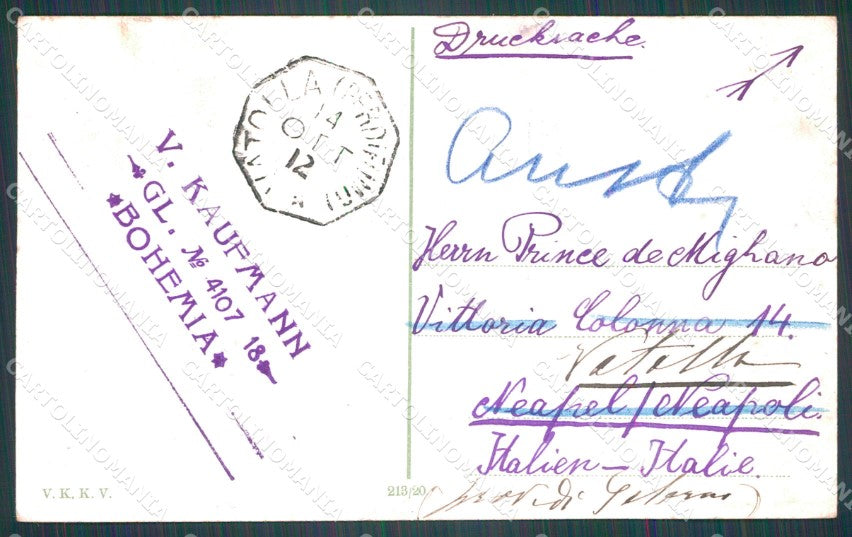 Drucksache.
V. KAUFMANN
GL. № 4107 18
BOHEMIA
14
OTT
12
Herrn Prince de Mighano
Vittoria Colonna 14.
Vatolla
Neapel / Neapoli.
Italien – Italie.
V. K. K. V.
213/20
CARTOLINOMANIA